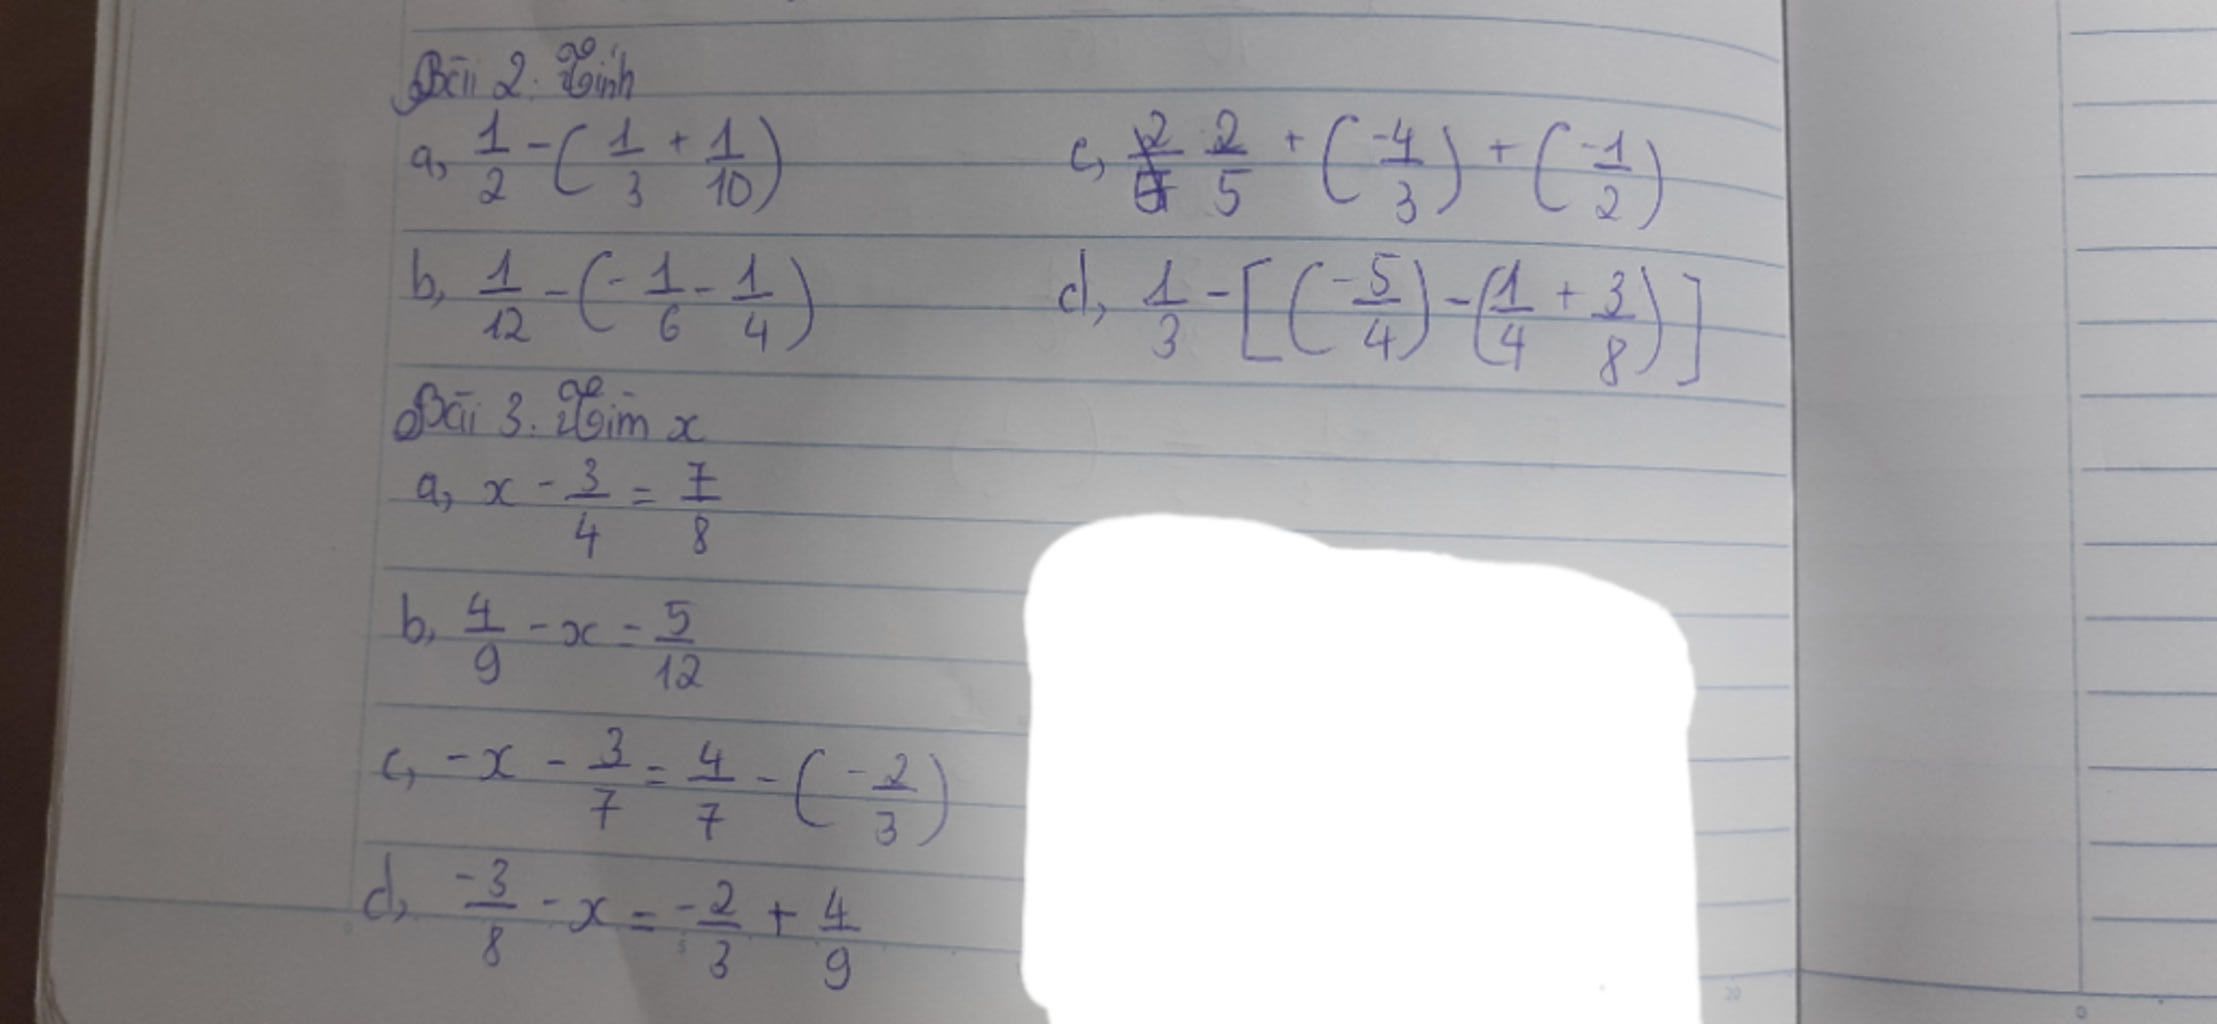 Bài 2. Tính
a, 1/2 - (1/3 + 1/10)
c, 2/5 + (-4/3) + (-1/2)
b, 1/12 - (-1/6 - 1/4)
d, 1/3 - [(-5/4) - (1/4 + 3/8)]
Bài 3. Tìm x
a, x - 3/4 = 7/8
b, 4/9 - x = 5/12
c, -x - 3/7 = 4/7 - (-2/3)
d, -3/8 - x = -2/3 + 4/9